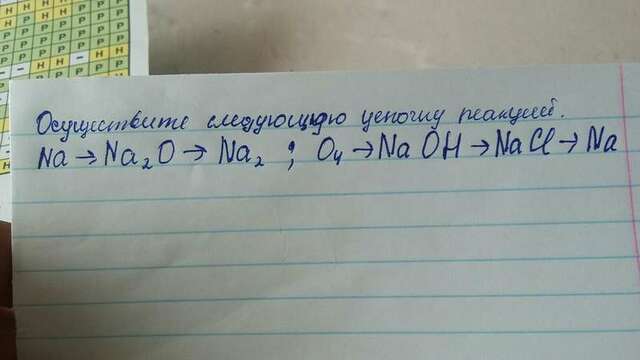 Осуществите следующую цепочку реакций.
Na → Na₂O → Na₂ ; O₄ → NaOH → NaCl → Na